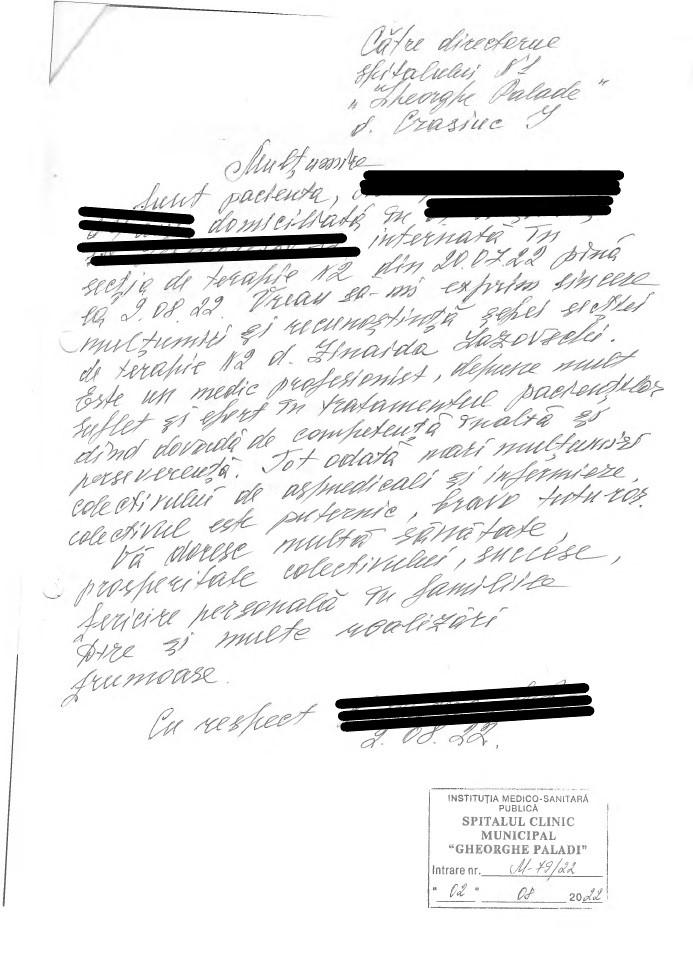 Către directorul
spitalului N1
"Gheorghe Palade"
d. Crasiuc I
Mulțumire
Sunt pacienta,
domiciliată în
internată în
secția de terapie N2 din 20.07.22 pînă
la 2.08.22. Vreau sa-mi exprim sincere
mulțumiri și recunoștință șefei secției
de terapie N2 d. Zinaida Lazovschi.
Este un medic profesionist, depune mult
suflet și efort în tratamentul pacienților
dînd dovadă de competență înaltă și
perseverență. Tot odată mari mulțumiri
colectivului de asmedicali și infermiere,
colectivul este puternic, bravo tuturor.
Vă doresc multă sănătate,
prosperitate colectivului, succese,
fericire personală în familiile
D-re și multe realizări
frumoase.
Cu respect
2.08.22.
INSTITUȚIA MEDICO-SANITARĂ
PUBLICĂ
SPITALUL CLINIC
MUNICIPAL
"GHEORGHE PALADI"
Intrare nr. M-79/22
"02" 08 2022